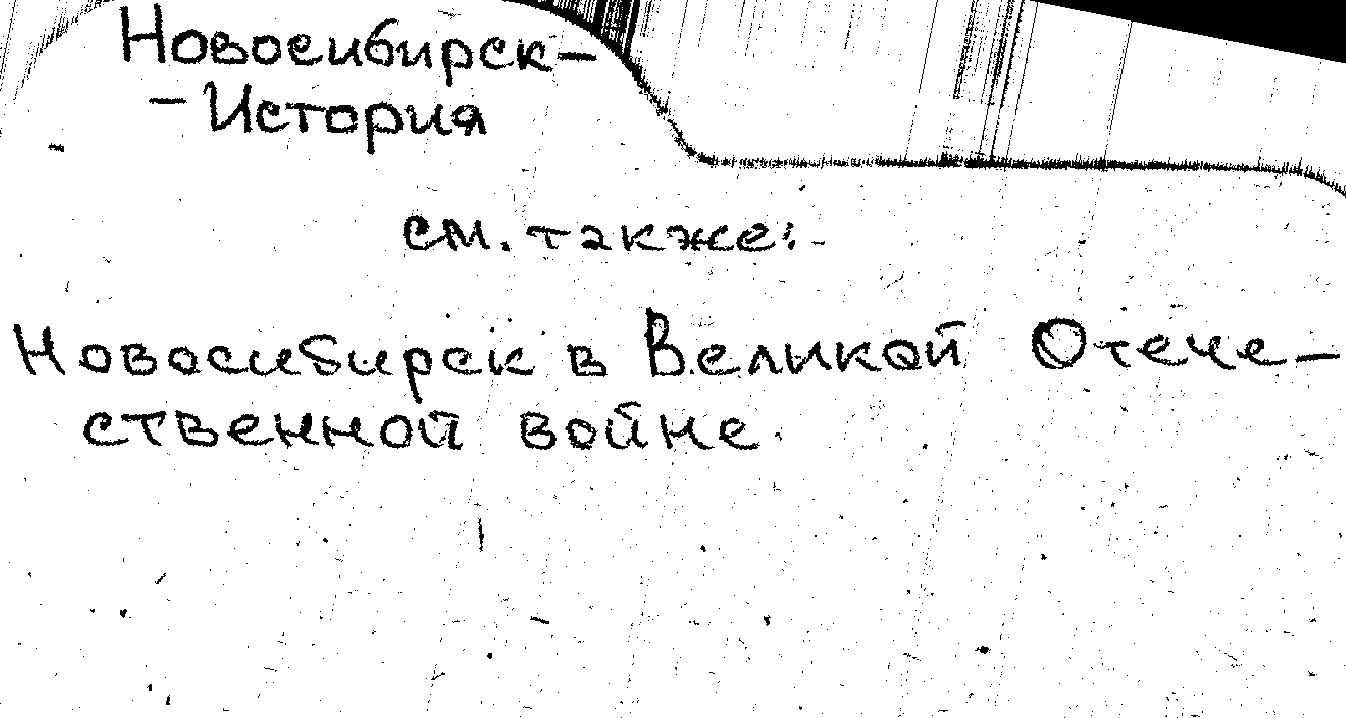 Новосибирск-
- История
см. также:
Новосибирск в Великой Отече-
ственной войне.